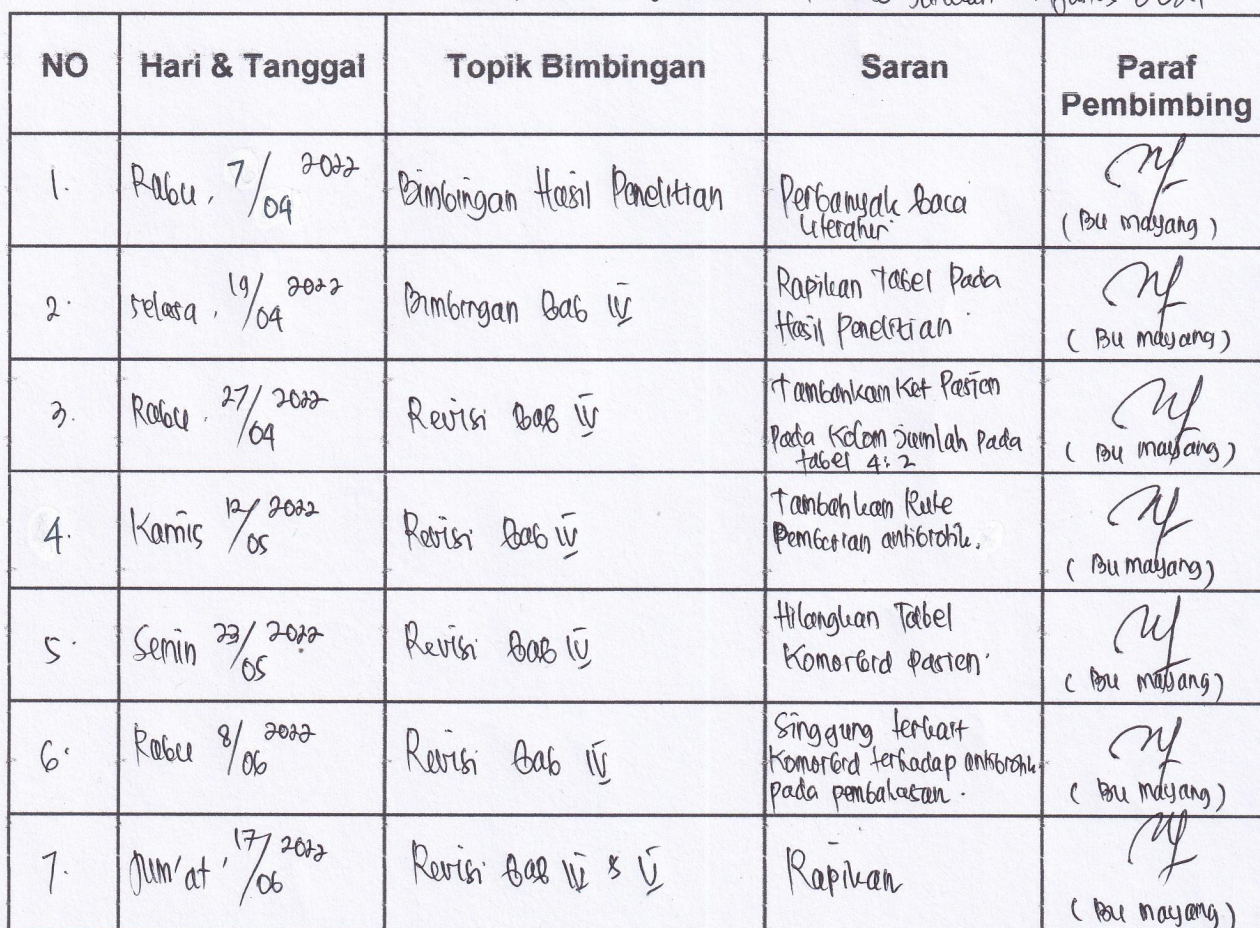 NO Hari & Tanggal Topik Bimbingan Saran Paraf
Pembimbing
1. Rabu, 7/04 2022 Bimbingan Hasil Penelitian Perbanyak baca
literatur
(Bu mayang)
2. Selasa, 19/04 2022 Bimbingan Bab IV Rapikan Tabel Pada
Hasil Penelitian
(Bu mayang)
3. Rabu, 27/04 2022 Revisi Bab IV Tambahkan Ket Pasien
Pada Kolom Jumlah Pada
tabel 4.2
(Bu mayang)
4. Kamis 12/05 2022 Revisi Bab IV Tambahkan Rute
Pemberian antibiotik.
(Bu mayang)
5. Senin 23/05 2022 Revisi Bab IV Hilangkan Tabel
Komorbid Pasien
(Bu mayang)
6. Rabu 8/06 2022 Revisi Bab IV Singgung terkait
Komorbid terhadap antibiotik
pada pembahasan.
(Bu mayang)
7. Jum'at, 17/06 2022 Revisi Bab IV & V Rapikan
(Bu mayang)